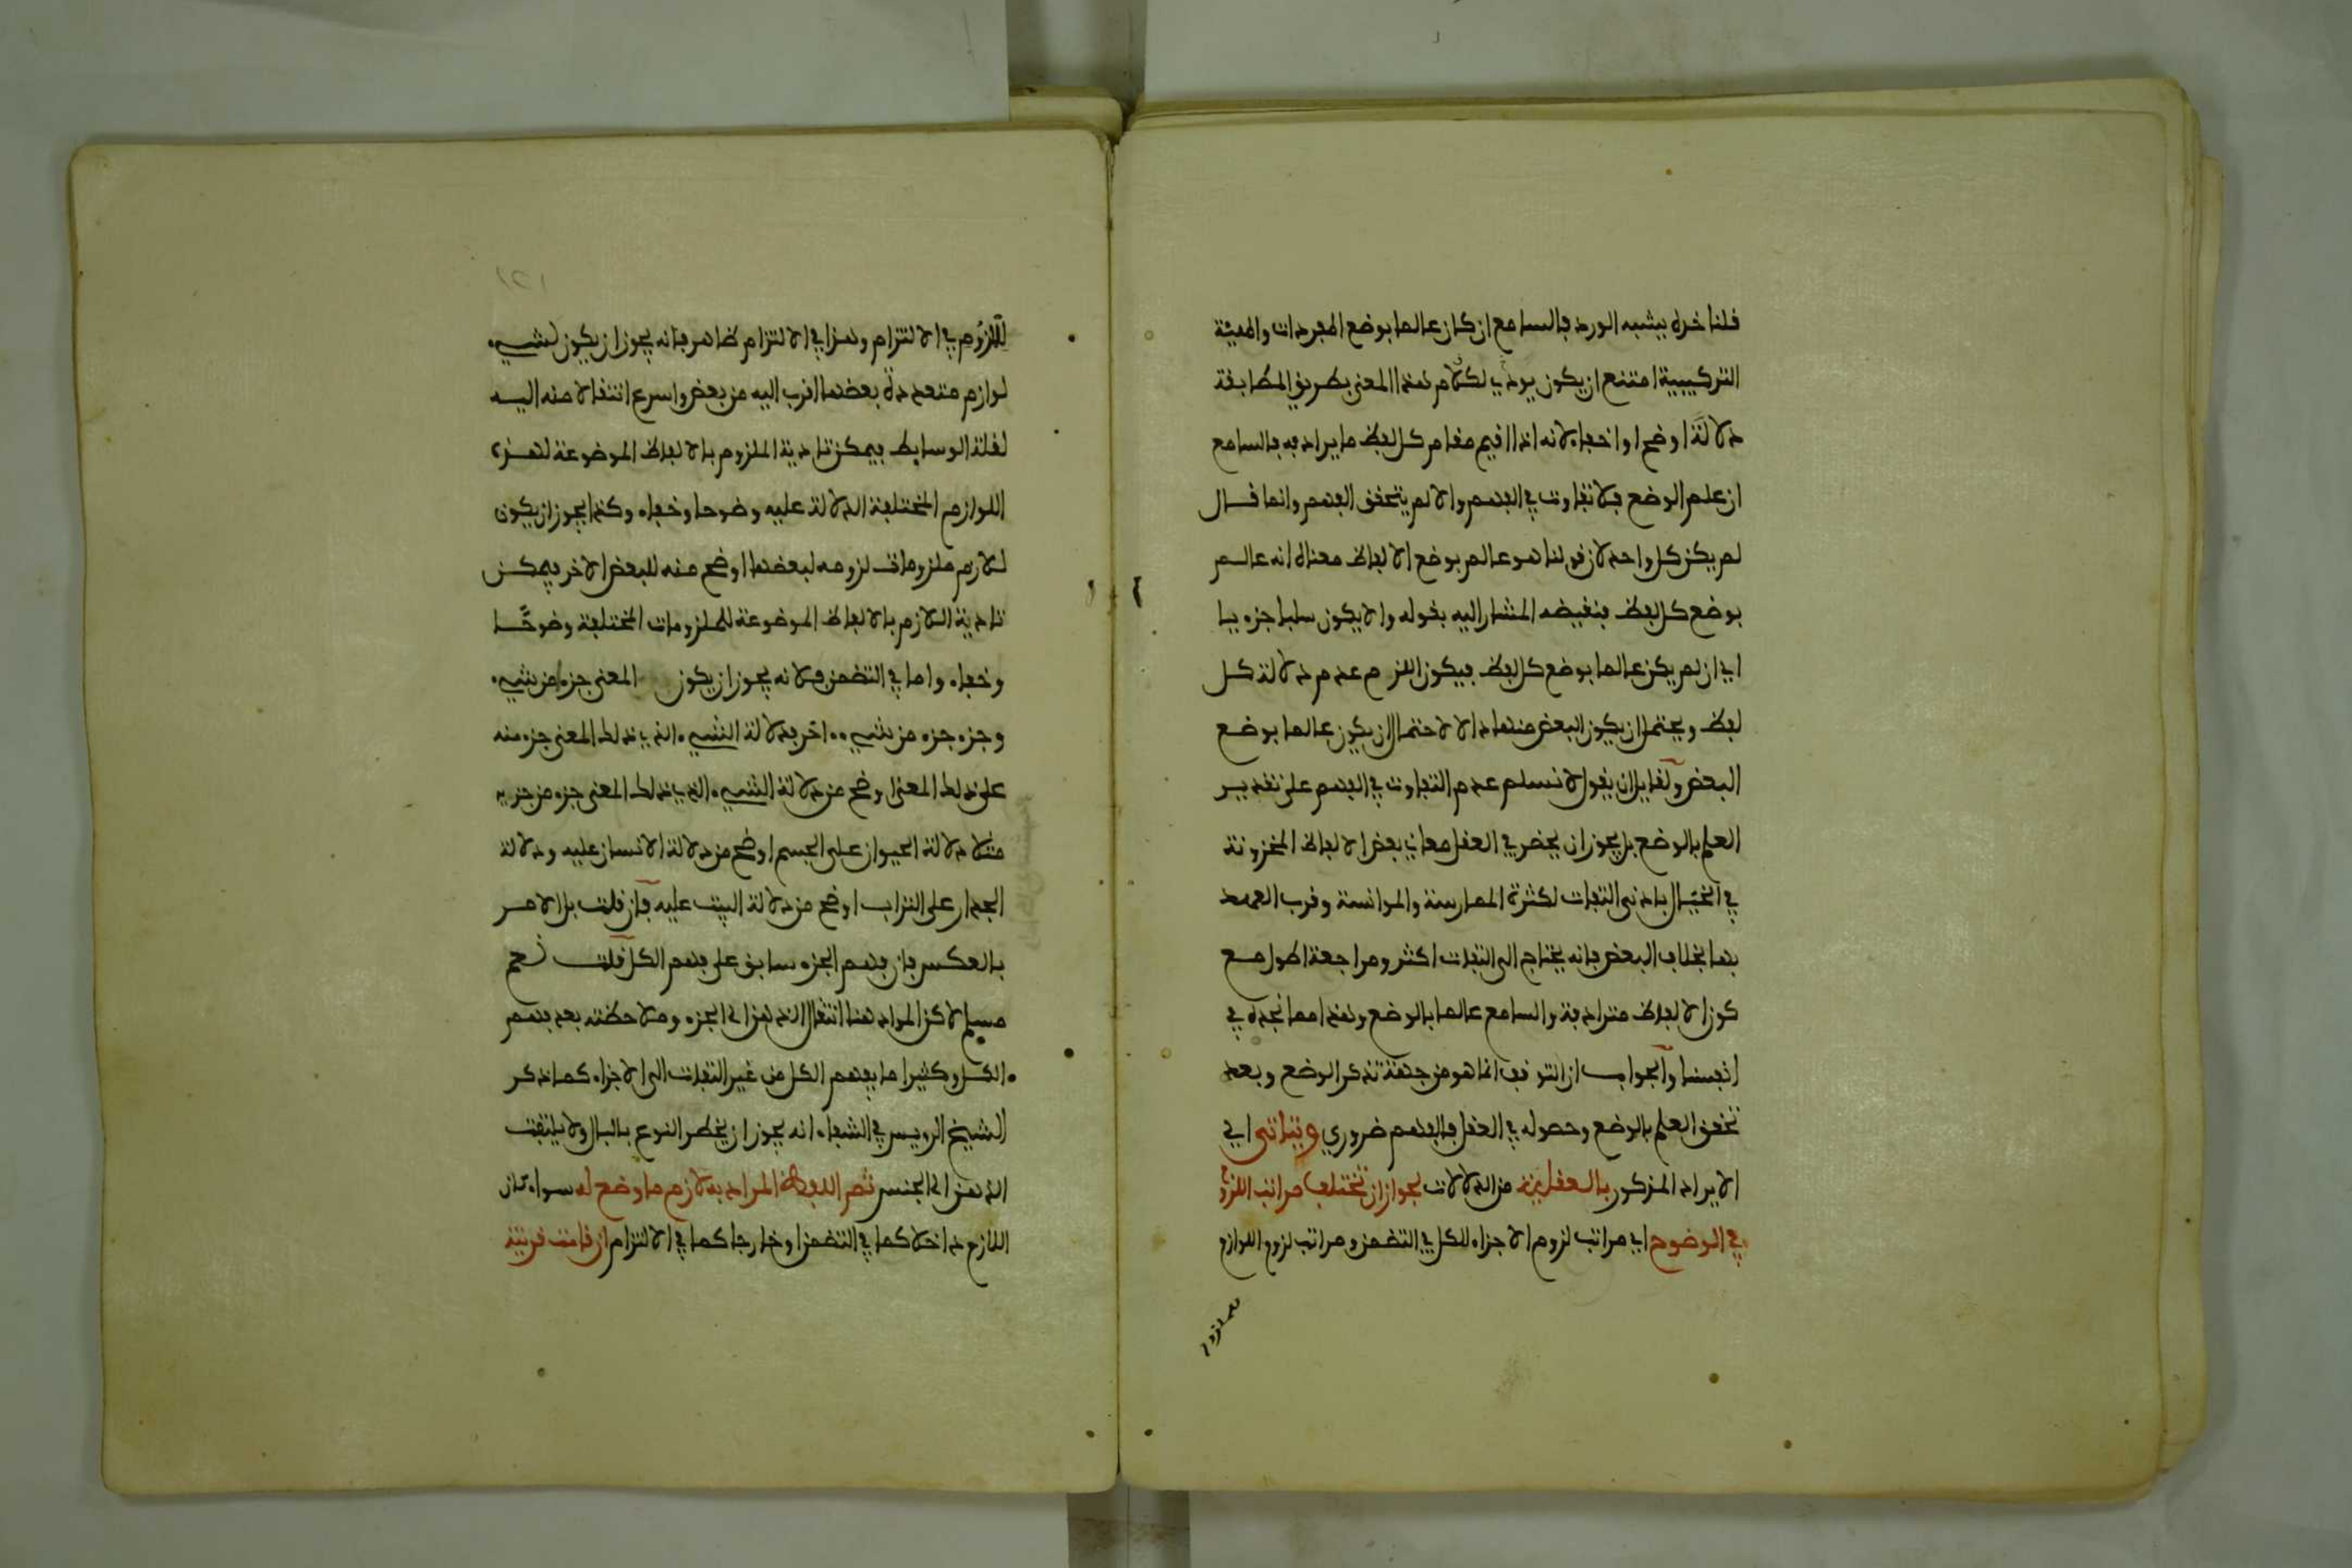 قلنا خده يشبه الورد فالسامع ان كان عالما بوضع المفردات والهيئة
التركيبية امتنع ان يكون يودي لكلام لهذا المعنى بطريق المطابقة
دلالة اوضح او اخفاء لانه اذا اقيم مقام كل لفظ ما يرادفه فالسامع
ان علم الوضع فلا تفاوت في الفهم والا لم يتحقق الفهم وانما قال
لم يكن كل واحد لان قولنا هو عالم بوضع الالفاظ معناه انه عالم
بوضع كل لفظ فنقيضه المشار اليه بقوله والا يكون سلبا جزءيا
اي ان لم يكن عالما بوضع كل لفظ فيكون اللازم عدم دلالة كل
لفظ ويحتمل ان يكون البعض منها دالا لاحتمال ان يكون عالما بوضع
البعض ولقايل ان يقول لا نسلم عدم التفاوت في الفهم على تقدير
العلم بالوضع بل يجوز ان يحضر في العقل معاني بعض الالفاظ المخزونة
في الخيال بادنى التفات لكثرة الممارسة والموانسة وقرب العهد
بها بخلاف البعض فانه يحتاج الى التفات اكثر ومراجعة اطول مع
كون الالفاظ مترادفة والسامع عالما بالوضع وهذا مما نجده في
انفسنا والجواب ان التوقف انما هو من جهة تذكر الوضع وبعد
تحقق العلم بالوضع وحصوله في العقل فالفهم ضروري ويتاتى اي
الايراد المذكور بالعقلية من الدلالات لجواز ان تختلف مراتب اللزوم
في الوضوح اي مراتب لزوم الاجزاء للكل في التضمن ومراتب لزوم اللوازم
للملزوم في الالتزام وهذا في الالتزام ظاهر فانه يجوز ان يكون لشيء
لوازم متعددة بعضها اقرب اليه من بعض واسرع انتقالا منه اليه
لقلة الوسايط فيمكن تادية الملزوم بالالفاظ الموضوعة لهذه
اللوازم المختلفة الدلالة عليه وضوحا وخفاء وكذا يجوز ان يكون
للازم ملزومات لزومه لبعضها اوضح منه للبعض الاخر فيمكن
تادية اللازم بالالفاظ الموضوعة للملزومات المختلفة وضوحا
وخفاء واما في التضمن فلانه يجوز ان يكون المعنى جزءا من شيء
وجزء جزء من شيء اخر فدلالة الشيء الذي ذلك المعنى جزء منه
على ذلك المعنى اوضح من دلالة الشيء الذي ذلك المعنى جزء من جزيه
مثلا دلالة الحيوان على الجسم اوضح من دلالة الانسان عليه ودلالة
الجدار على التراب اوضح من دلالة البيت عليه فان قلت بل الامر
بالعكس فان فهم الجزء سابق على فهم الكل قلت نعم
مسلم لاكن المراد هنا انتقال الذهن الى الجزء وملاحظته بعد فهم
الكل وكثيرا ما يفهم الكل من غير التفات الى الاجزاء كما ذكر
الشيخ الرويس في الشفاء انه يجوز ان يخطر النوع بالبال ولا يلتفت
الذهن الى الجنس ثم اللفظ المراد به لازم ما وضع له سواء كان
اللازم داخلا كما في التضمن او خارجا كما في الالتزام ان قامت قرينة